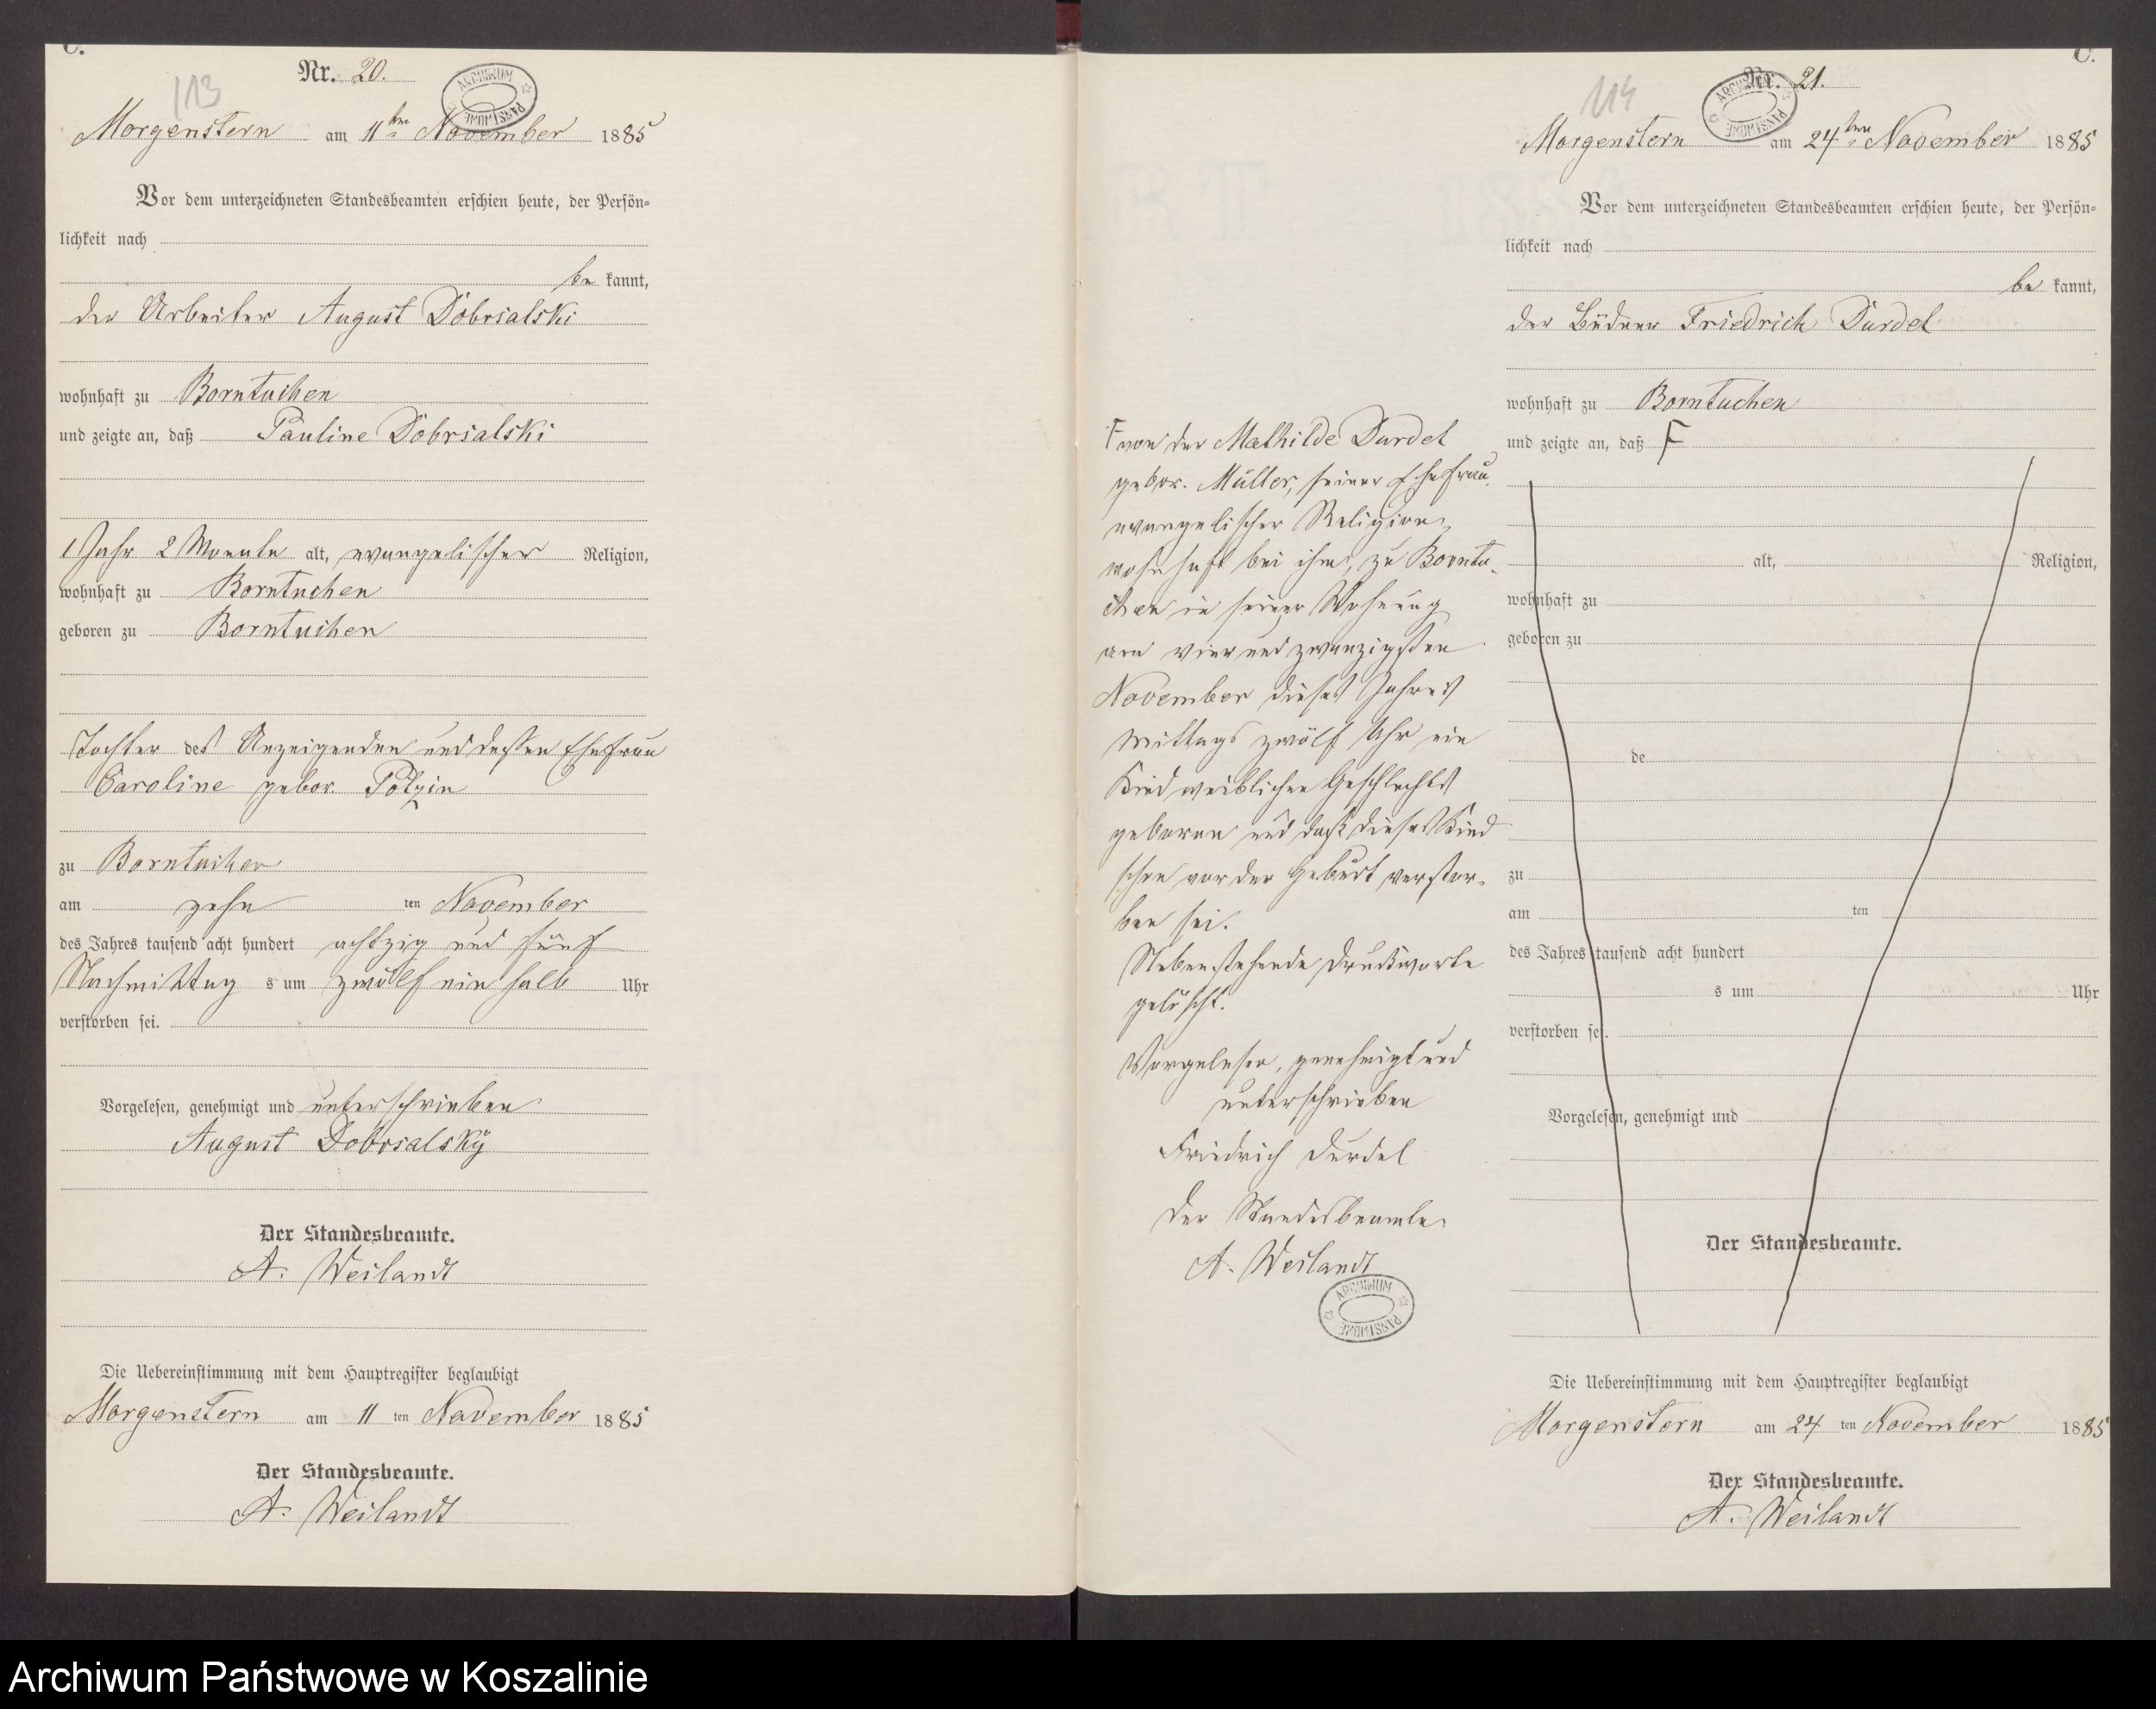 C.
113
Nr. 20.
ARCHIWUM PAŃSTWOWE
Morgenstern am 11ten November 1885
Vor dem unterzeichneten Standesbeamten erschien heute, der Persön-
lichkeit nach
be kannt,
der Arbeiter August Dobrialski
wohnhaft zu Borntuchen
und zeigte an, daß Pauline Dobrialski
1 Jahr 2 Monate alt, evangelischer Religion,
wohnhaft zu Borntuchen
geboren zu Borntuchen
Tochter des Anzeigenden und dessen Ehefrau
Caroline gebor. Potzin
zu Borntuchen
am zehn ten November
des Jahres tausend acht hundert achtzig und fünf
Nachmittag s um zwölf ein halb Uhr
verstorben sei.
Vorgelesen, genehmigt und unterschrieben
August Dobrialský
Der Standesbeamte.
A. Weilandt
Die Uebereinstimmung mit dem Hauptregister beglaubigt
Morgenstern am 11 ten November 1885
Der Standesbeamte.
A. Weilandt
C.
114
Nr. 21.
ARCHIWUM PAŃSTWOWE
Morgenstern am 24ten November 1885
Vor dem unterzeichneten Standesbeamten erschien heute, der Persön-
lichkeit nach
be kannt,
der Büdner Friedrich Durdel
wohnhaft zu Borntuchen
und zeigte an, daß F
F von der Mathilde Durdel
gebor. Müller, seiner Ehefrau,
evangelischer Religion,
wohnhaft bei ihm, zu Borntu-
chen in seiner Wohnung
am vier und zwanzigsten
November dieses Jahres
Mittags zwölf Uhr ein
Kind weiblichen Geschlechts
geboren und daß dieses Kind
schon vor der Geburt verstor-
ben sei.
Nebenstehende Druckworte
gelöscht.
Vorgelesen, genehmigt und
unterschrieben
Friedrich Durdel
Der Standesbeamte
A. Weilandt
ARCHIWUM PAŃSTWOWE
alt, Religion,
wohnhaft zu
geboren zu
de
zu
am ten
des Jahres tausend acht hundert
s um Uhr
verstorben sei.
Vorgelesen, genehmigt und
Der Standesbeamte.
Die Uebereinstimmung mit dem Hauptregister beglaubigt
Morgenstern am 24 ten November 1885
Der Standesbeamte.
A. Weilandt
Archiwum Państwowe w Koszalinie